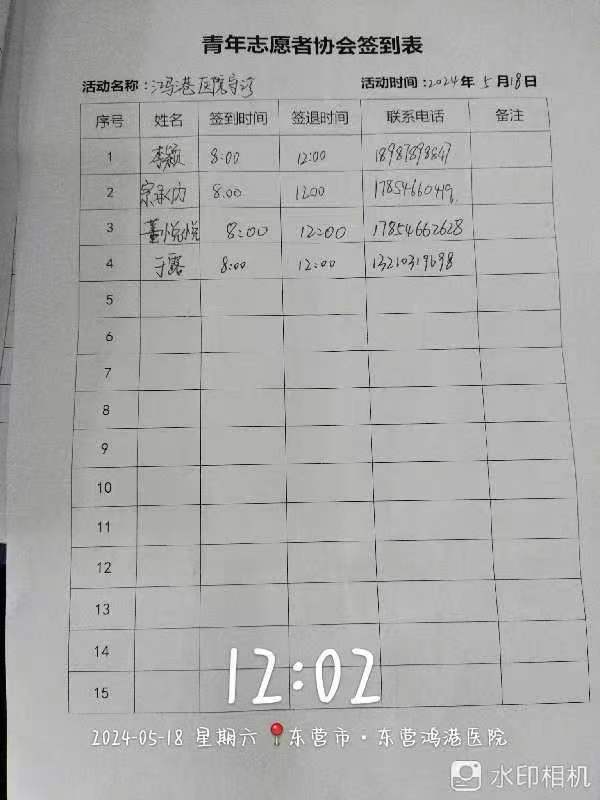 青年志愿者协会签到表
活动名称：鸿港医院导诊 活动时间：2024年5月18日
序号 姓名 签到时间 签退时间 联系电话 备注
1 李颖 8:00 12:00
2 8:00 1200 17854660419
3 董悦悦 8:00 12:00 17854662628
4 于露 8:00 12:00 13210319698
5
6
7
8
9
10
11
12
13
14
15
12:02
2024-05-18 星期六 东营市·东营鸿港医院
水印相机